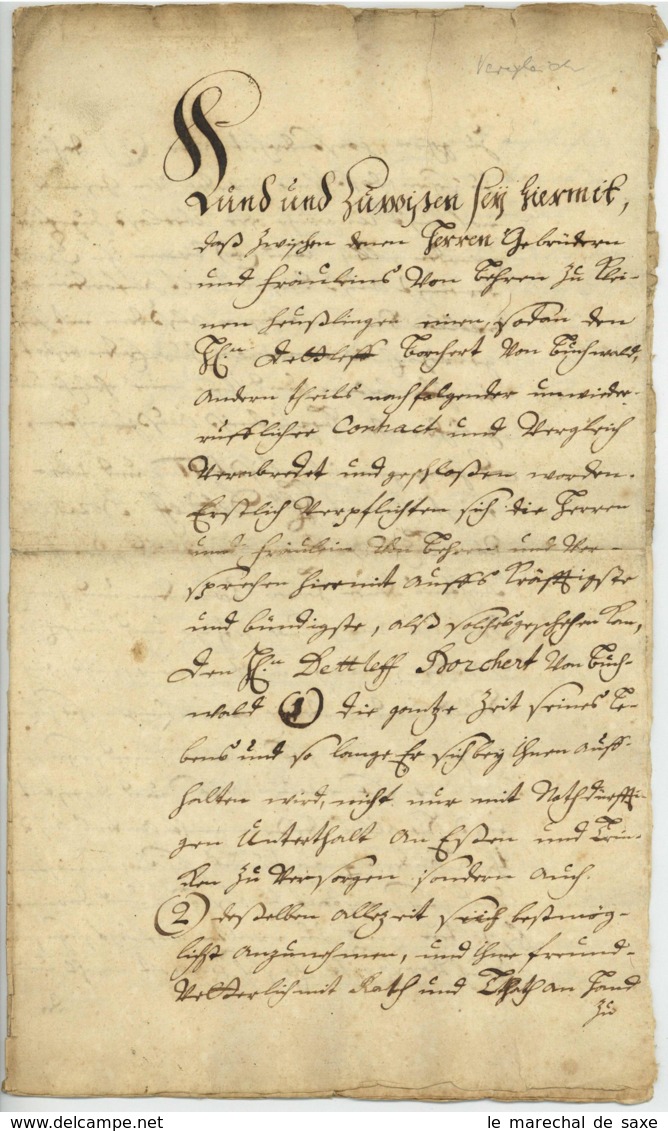 Vergleich
Kund und Zuwißen seÿ hiermit,
daß zwischen denen Herren Gebrüdern
und Fräuleins Von Behren zu Klei-
nen Heußlingen einen, sodan den
H.n Dettleff Borchert Von Buchwald,
andern theils nachfolgender unwieder-
rufflicher Contract und Vergleich
Verabredet und geschloßen worden.
Erstlich Verpflichten sich die Herren
und Fräulein Von Behren und Ver-
sprechen hiermit auffs kräfftigste
und bündigste, alß solches geschehen kan,
den H.n Dettleff Borchert Von Buch-
wald (1) die gantze Zeit seines Le-
bens und so lange Er sich beÿ ihnen auff-
halten wird, nicht nur mit Nothdürffti-
gen Unterthalt an Eßen und Trin-
ken zu Versorgen sondern auch.
(2) deßelben allezeit sich bestmög-
lichst anzunehmen, und ihme freund-
Vetterlich mit Rath und That an Hand
zu
www.delcampe.net
le marechal de saxe